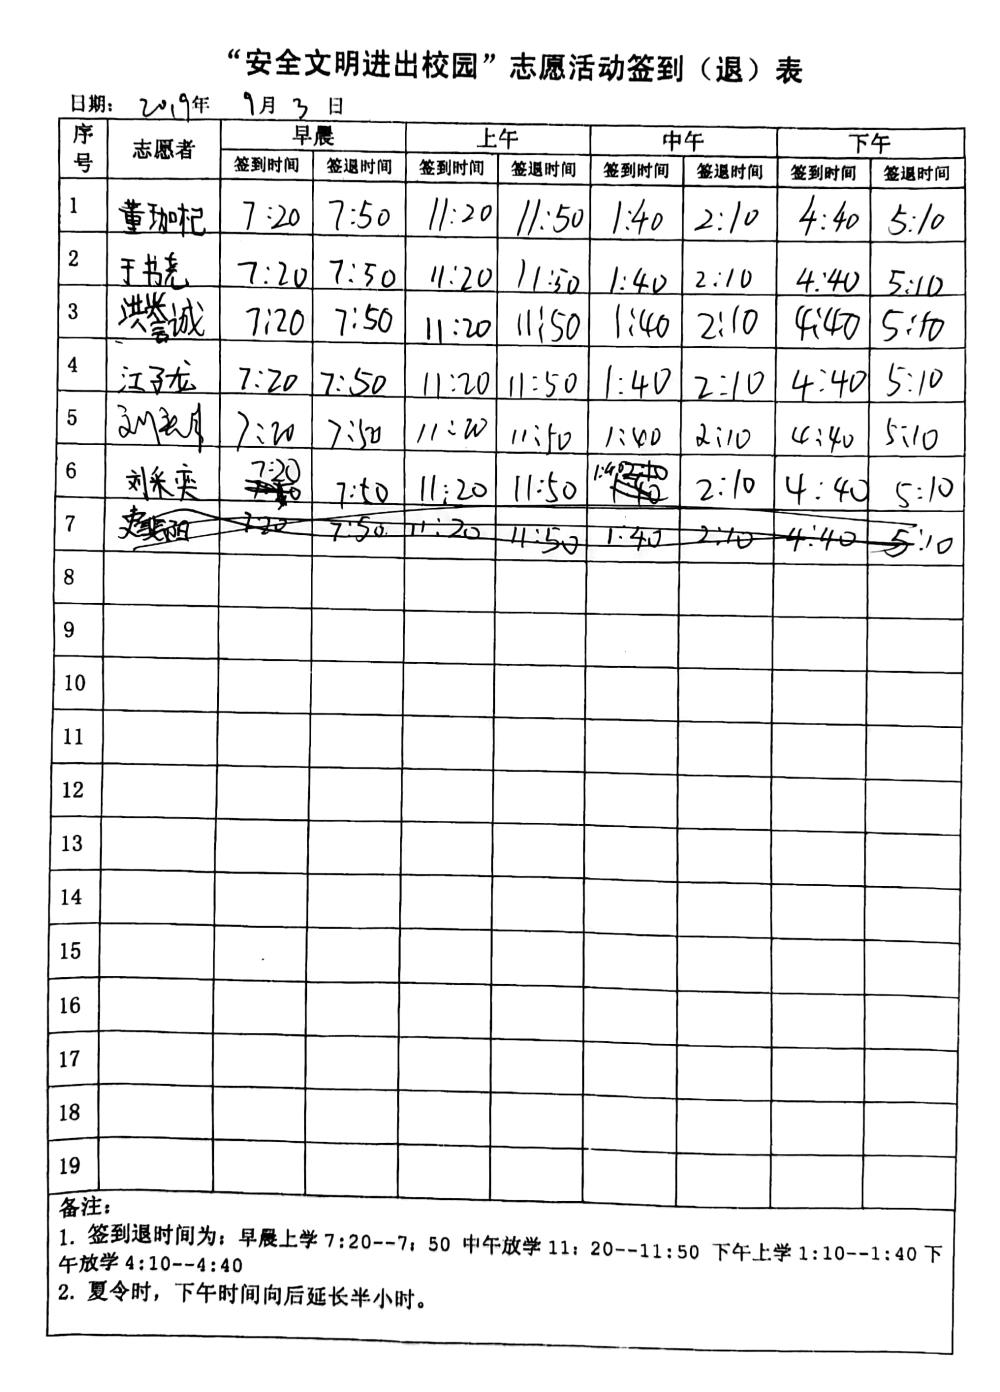 “安全文明进出校园”志愿活动签到（退）表
日期： 2019年 9月 3 日
序号 志愿者 早晨 上午 中午 下午
签到时间 签退时间 签到时间 签退时间 签到时间 签退时间 签到时间 签退时间
1 董珈杞 7:20 7:50 11:20 11:50 1:40 2:10 4:40 5:10
2 于书尧 7:20 7:50 11:20 11:50 1:40 2:10 4:40 5:10
3 洪誉诚 7:20 7:50 11:20 11:50 1:40 2:10 4:40 5:10
4 江子龙 7:20 7:50 11:20 11:50 1:40 2:10 4:40 5:10
5 7:20 7:50 11:20 11:50 1:40 2:10 4:40 5:10
6 刘米奕 7:20 7:50 11:20 11:50 1:40 2:10 4:40 5:10
7 7:20 7:50 11:20 11:50 1:40 2:10 4:40 5:10
8
9
10
11
12
13
14
15
16
17
18
19
备注：
1. 签到退时间为：早晨上学 7:20--7：50 中午放学 11：20--11:50 下午上学 1:10--1:40 下
午放学 4:10--4:40
2. 夏令时，下午时间向后延长半小时。